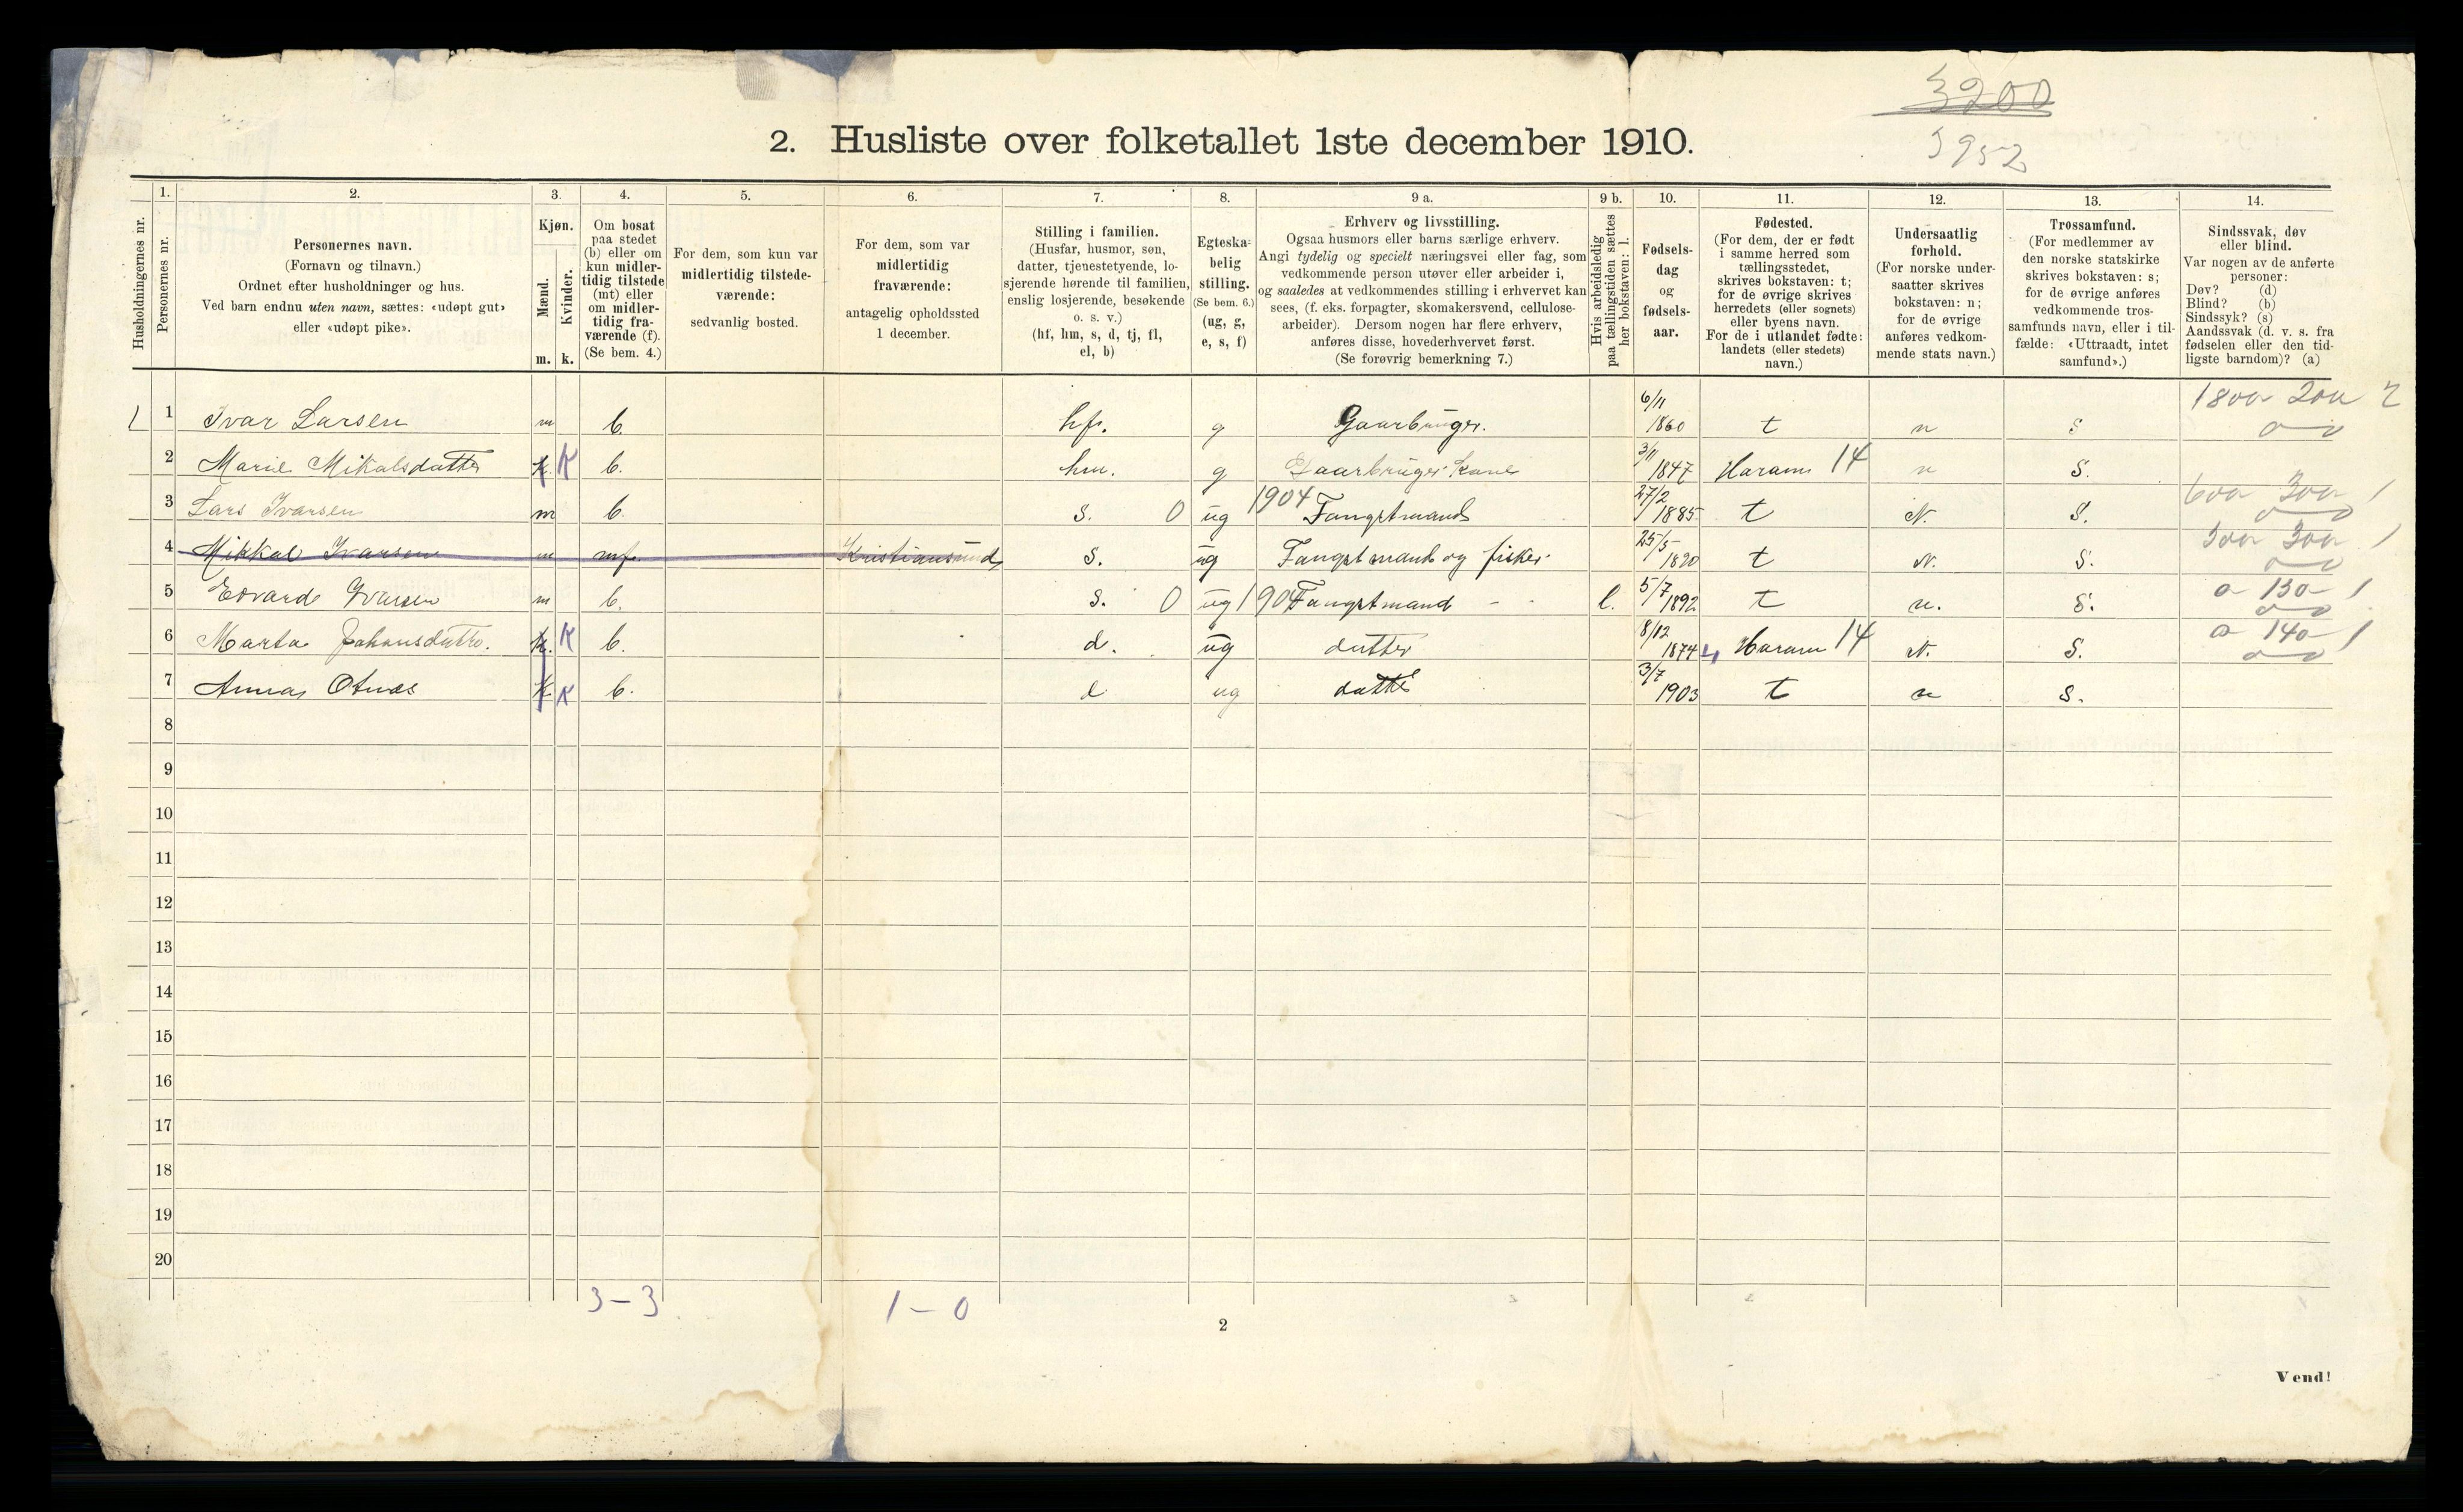 3200
3952
2. Husliste over folketallet 1ste december 1910.
Husholdningernes nr.
1. Personernes nr.
2. Personernes navn.
(Fornavn og tilnavn.)
Ordnet efter husholdninger og hus.
Ved barn endnu uten navn, sættes: «udøpt gut»
eller «udøpt pike».
3. Kjøn.
Mænd. m.
Kvinder. k.
4. Om bosat
paa stedet
(b) eller om
kun midler-
tidig tilstede
(mt) eller
om midler-
tidig fra-
værende (f).
(Se bem. 4.)
5. For dem, som kun var
midlertidig tilstede-
værende:
sedvanlig bosted.
6. For dem, som var
midlertidig
fraværende:
antagelig opholdssted
1 december.
7. Stilling i familien.
(Husfar, husmor, søn,
datter, tjenestetyende, lo-
sjerende hørende til familien,
enslig losjerende, besøkende
o. s. v.)
(hf, hm, s, d, tj, fl,
el, b)
8. Egteska-
belig
stilling.
(Se bem. 6.)
(ug, g,
e, s, f)
9 a. Erhverv og livsstilling.
Ogsaa husmors eller barns særlige erhverv.
Angi tydelig og specielt næringsvei eller fag, som
vedkommende person utøver eller arbeider i,
og saaledes at vedkommendes stilling i erhvervet kan
sees, (f. eks. forpagter, skomakersvend, cellulose-
arbeider). Dersom nogen har flere erhverv,
anføres disse, hovederhvervet først.
(Se forøvrig bemerkning 7.)
9 b. Hvis arbeidsledig
paa tællingstiden sættes
her bokstaven: l.
10. Fødsels-
dag
og
fødsels-
aar.
11. Fødested.
(For dem, der er født
i samme herred som
tællingsstedet,
skrives bokstaven: t;
for de øvrige skrives
herredets (eller sognets)
eller byens navn.
For de i utlandet fødte:
landets (eller stedets)
navn.)
12. Undersaatlig
forhold.
(For norske under-
saatter skrives
bokstaven: n;
for de øvrige
anføres vedkom-
mende stats navn.)
13. Trossamfund.
(For medlemmer av
den norske statskirke
skrives bokstaven: s;
for de øvrige anføres
vedkommende tros-
samfunds navn, eller i til-
fælde: «Uttraadt, intet
samfund».)
14. Sindssvak, døv
eller blind.
Var nogen av de anførte
personer:
Døv? (d)
Blind? (b)
Sindssyk? (s)
Aandssvak (d. v. s. fra
fødselen eller den tid-
ligste barndom)? (a)
1 1 Ivar Larsen m b. hfr. g Gaarbruger. 6/11 1860 t n s
2 Marie Mikalsdatter k. K b. hm. g Gaarbruger Kane 3/11 1847 Haram 14 n S.
3 Lars Ivarsen m b. s. 0 ug 1904 Fangstmand 27/2 1885 t N. S.
4 Mikkal Ivarsen m mf. Kristiansund s. ug Fangstmand og fisker 25/5 1890 t N. S.
5 Edvard Ivarsen m b. s. 0 ug 1904 Fangstmand l. 5/7 1892 t n. S.
6 Marta Johansdatter. k. K b. d. ug datter 8/12 1874 Haram 14 N. S.
7 Anna Otnes k K b. d ug datte 3/7 1903 t n S.
8
9
10
11
12
13
14
15
16
17
18
19
20
3 – 3 1 – 0
2
Vend!